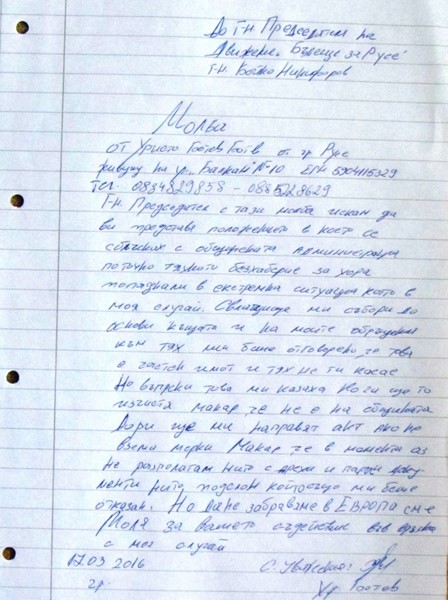 До Г-н Председателя на
Движение "Бъдеще за Русе"
Г-н. Бойко Никифоров
Молба
от Христо Ботев от гр. Русе
живущ на ул. "Балкан" №10 ЕГН
Тел
Г-н. Председател с тази молба искам да
ви представя положението в което се
сблъсках с общинската администрация
по точно тяхното безхаберие за хора
попаднали в екстремна ситуация като в
моя случай. Свлачище ми събори до
основи къщата и на моите обръщения
към тях ми беше отговорено, че това
е частен имот и тях не ги касае
Но въпреки това ми казаха но ги ще го
изчистя макар че не е на общината
Дори ще ми направят акт ако не
взема мерки Макар че в момента аз
не разполагам нито с дрехи и пари
менти нито подслон който също ми беше
отказан. Но нали не забравяме в Европа сме
Моля за вашето съдействие във връзка
с моя случай
17.03 2016 С Уважение:
гр.